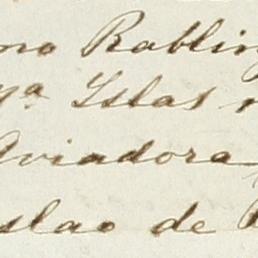 no Rabling
ya Islas
Aviadora
slao de